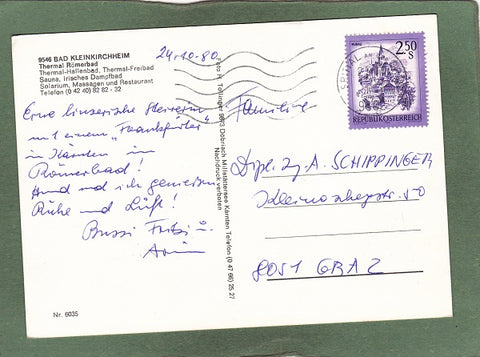 9546 BAD KLEINKIRCHHEIM
Thermal Römerbad
Thermal-Hallenbad, Thermal-Freibad
Sauna, Irisches Dampfbad
Solarium, Massagen und Restaurant
Telefon (0 42 40) 82 82 - 32
24.10.80
Eine linzerische
mit einem "Frankfurter"
in Kärnten im
Römerbad!
Hund und ich genießen
Ruhe und Luft!
Bussi Fritzi u.
Nr. 6035
9873 Döbriach Millstättersee Kärnten Telefon (0 47 66) 25 27
Nachdruck verboten
2.50
S
REPUBLIK ÖSTERREICH
Familie
Dipl. Ing. A. SCHIPPINGER
50
8051 GRAZ